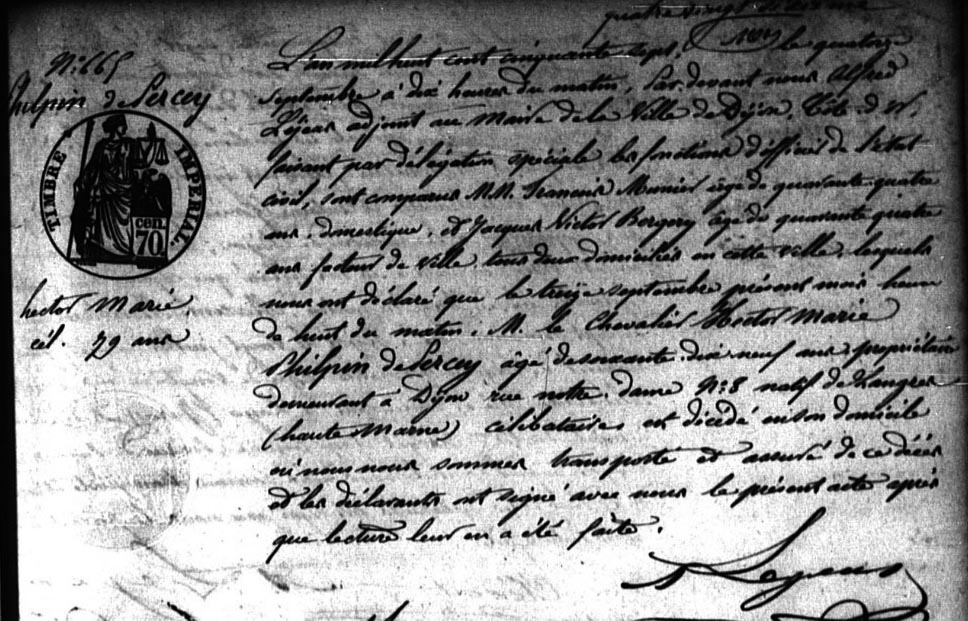 quatre vingt
N°. 665
Philpin de Sercey
TIMBRE IMPERIAL.
CEN.
70
hector Marie.
cél. 79 ans
L'an mil huit cent cinquante sept, le quatorze
septembre à dix heures du matin, Par devant nous Alfred
Lejeas adjoint au Maire de la Ville de Dijon, Côte d'Or,
faisant par délégation spéciale les fonctions d'officier de l'état
civil, sont comparus MM. Francois Munier âgé de quarante quatre
ans, domestique, et Jacques Victor Bergery âgé de quarante quatre
ans facteur de ville, tous deux domiciliés en cette ville, lesquels
nous ont déclaré que le treize septembre présent mois heure
de huit du matin, M. le Chevalier Hector Marie
Philpin de Sercey âgé de soixante dix neuf ans, propriétaire
demeurant à Dijon rue notre dame N°. 8 natif de Langres
(haute Marne) célibataire est décédé en son domicile
où nous nous sommes transporté et assuré de ce décès
et les déclarants ont signé avec nous le présent acte après
que lecture leur en a été faite.